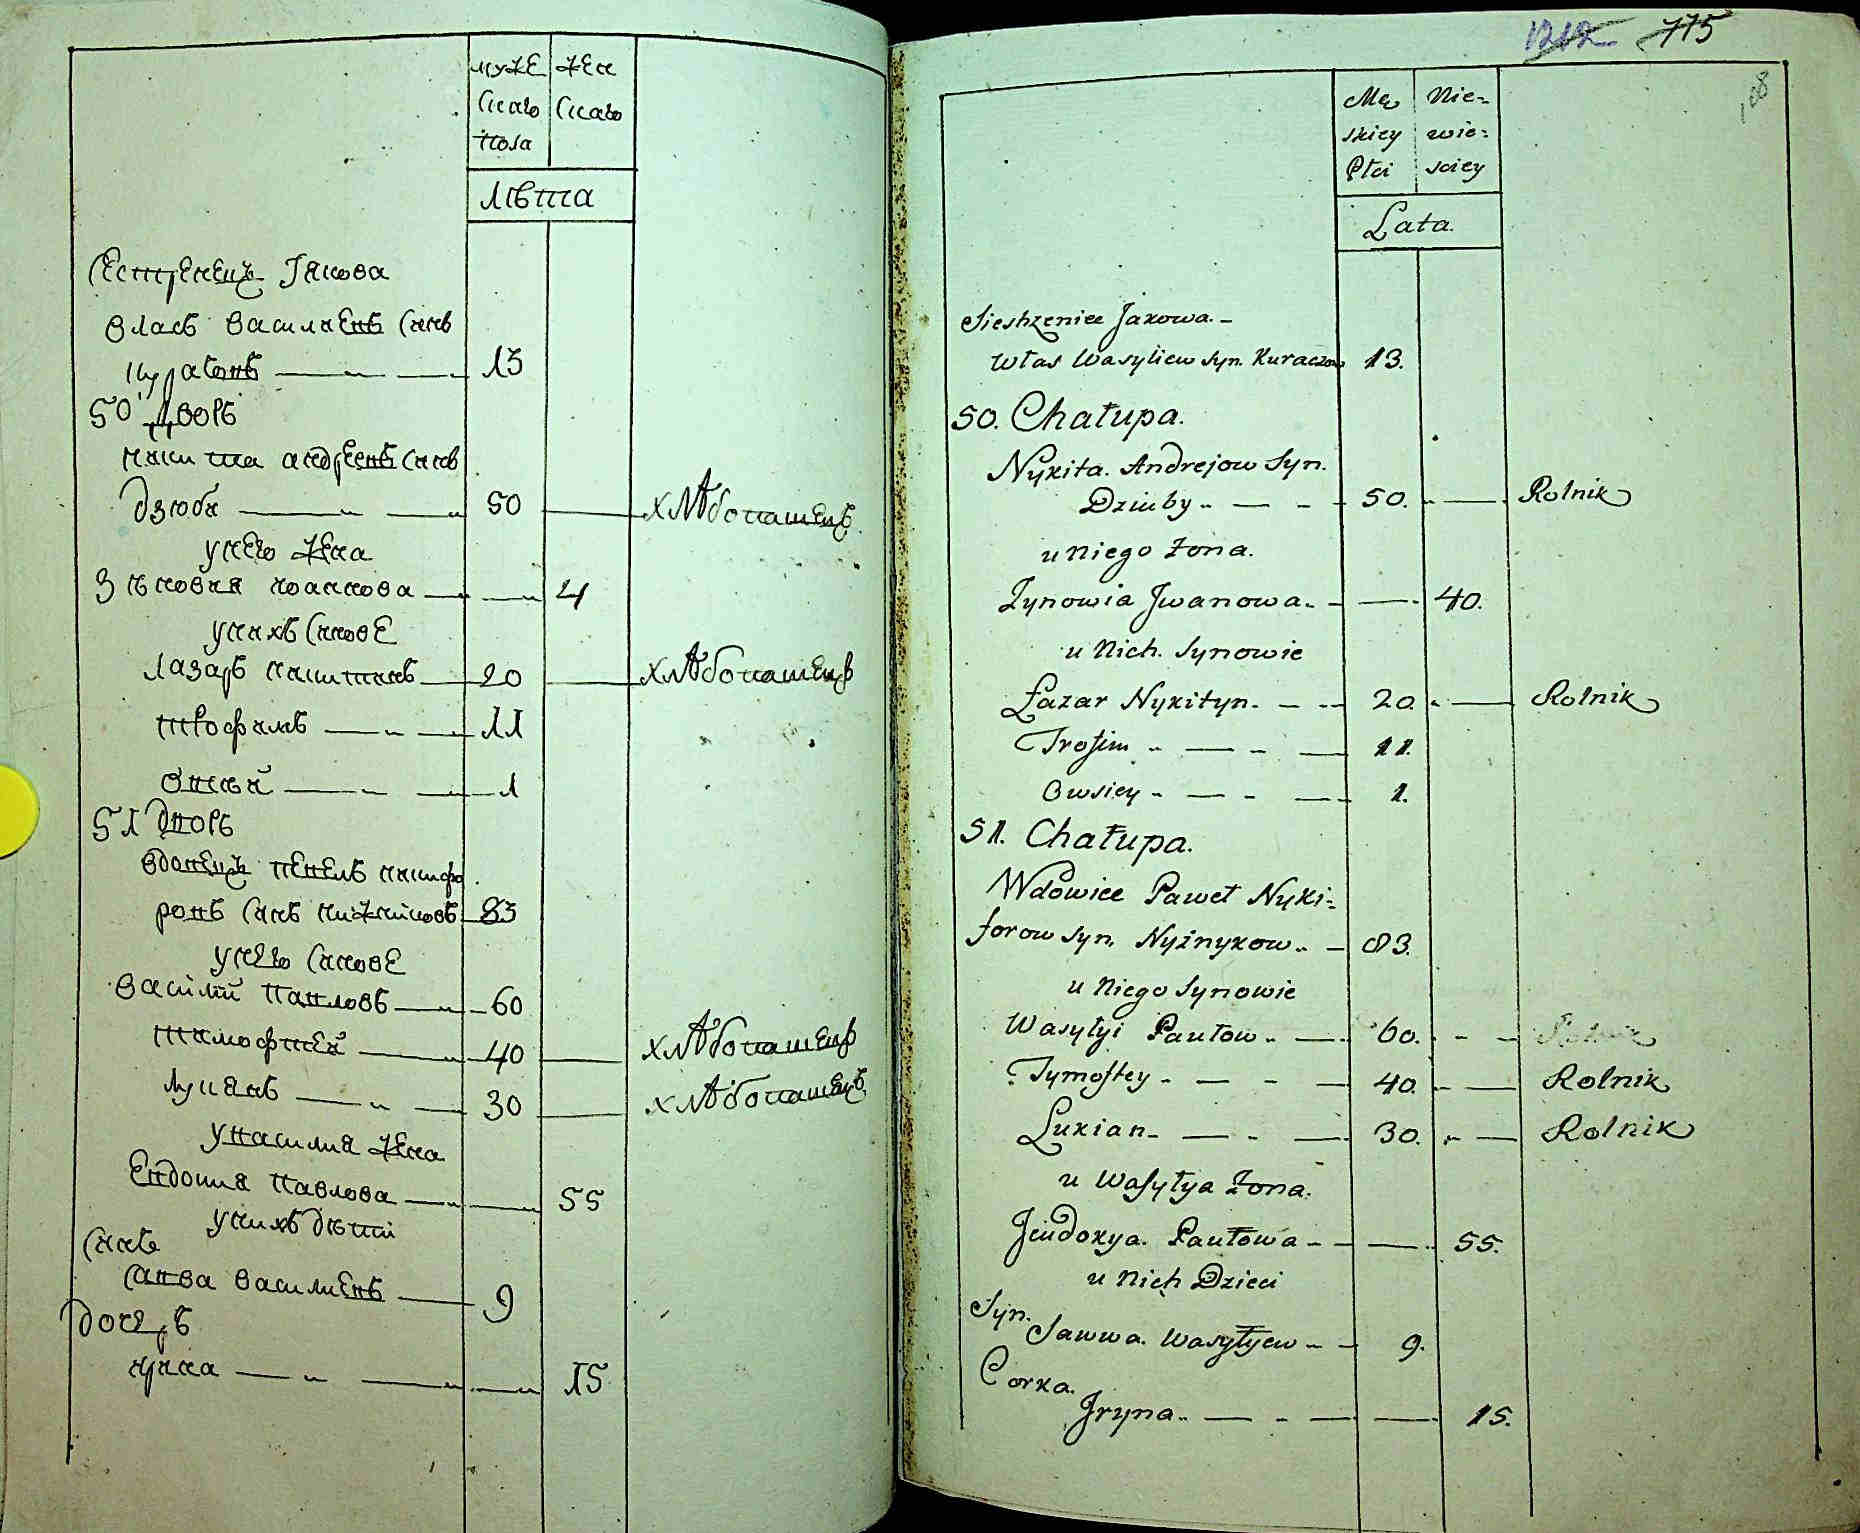 муже жен
скаго скаго
пола
лѣта
Сестренецъ Іякова
власъ василиевъ синъ
50 дворъ
никита андреевъ синъ
дзюба 50 хлѣбопашецъ
у него жена
зѣновия 4
у нихъ синове
лазаръ никитинъ 20 хлѣбопашецъ
трофимъ 11
1
51 дворъ
вдовецъ павелъ никифо
ровъ синъ нижниковъ 83
у него синове
василий павловъ 60
тимофтей 40 хлѣбопашецъ
лукянъ 30 хлѣбопашецъ
у василия жена
Евдокия павлова 55
у нихъ дѣти
синъ
савва василиевъ 9
дочеръ
ирина 15
775
108
Mę Nie-
skiey wie-
Płci sciey
Lata.
Siestrzeniec Jakowa.
Włas Wasyliew syn. Kuraczow 13.
50. Chałupa.
Nykita. Andrejow Syn.
Dziuby 50. Rolnik
u Niego Żona.
Zynowia Jwanowa. 40.
u Nich. Synowie
Łazar Nykityn. 20. Rolnik
Trofim 11.
Owsiey 1.
51. Chałupa.
Wdowiec Paweł Nyki-
forow syn. Nyżnykow 83.
u Niego Synowie
Wasyłyi Pawłow 60. Rolnik
Tymoftey 40. Rolnik
Łukian 30. Rolnik
u Wasyłya Żona.
Jewdokya. Pawłowa 55.
u Nich Dzieci
Syn.
Sawwa. Wasyłyew 9.
Corka.
Jryna 15.